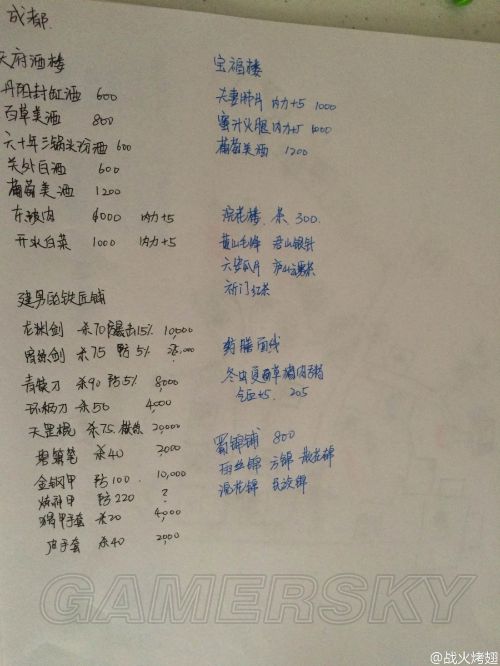 成都
天府酒楼
丹阳封缸酒 600
百草美酒 800
六十年三锅头汾酒 600
关外白酒 600
葡萄美酒 1200
东坡肉 4000 内力+5
开水白菜 1000 内力+5
建男的铁匠铺
龙渊剑 杀70 暴击15% 10,000
剑 杀75 防5%
青铁刀 杀90 防5% 8000
环柄刀 杀50 4,000
天罡棍 杀75 20,000
笔 杀40 2000
金钢甲 防100 10,000
甲 防220 ?
猬甲手套 杀20 4000
皮手套 杀40 2000
宝福楼
夫妻肺片 内力+5 1000
蜜汁火腿 内力+5 1000
葡萄美酒 1200
浣花楼 茶 300
黄山毛峰 君山银针
六安瓜片 庐山云雾茶
祈门红茶
药膳面线
冬虫夏草瘦肉粥
气血+5 205
蜀锦铺 800
雨丝锦 方锦 散花锦
浣花锦 民族锦
GAMERSKY
@战火烤翅